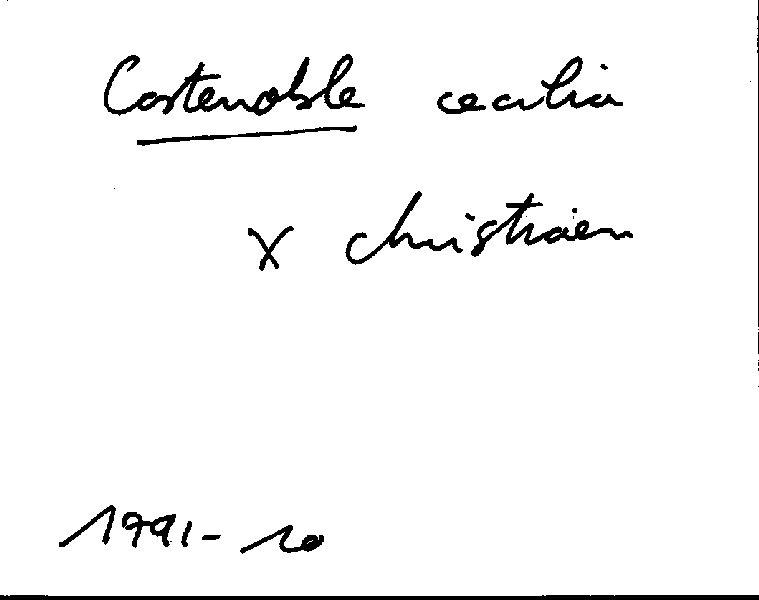 Costenoble cecilia
x christiaen
1991-10